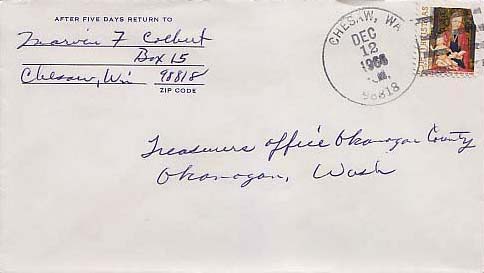 AFTER FIVE DAYS RETURN TO
Marvin F Colbert
Box 15
Chesaw, Wn 98818
ZIP CODE
CHESAW, WA
DEC
12
1966
98818
Treasurers office Okanogan County
Okanogan, Wash